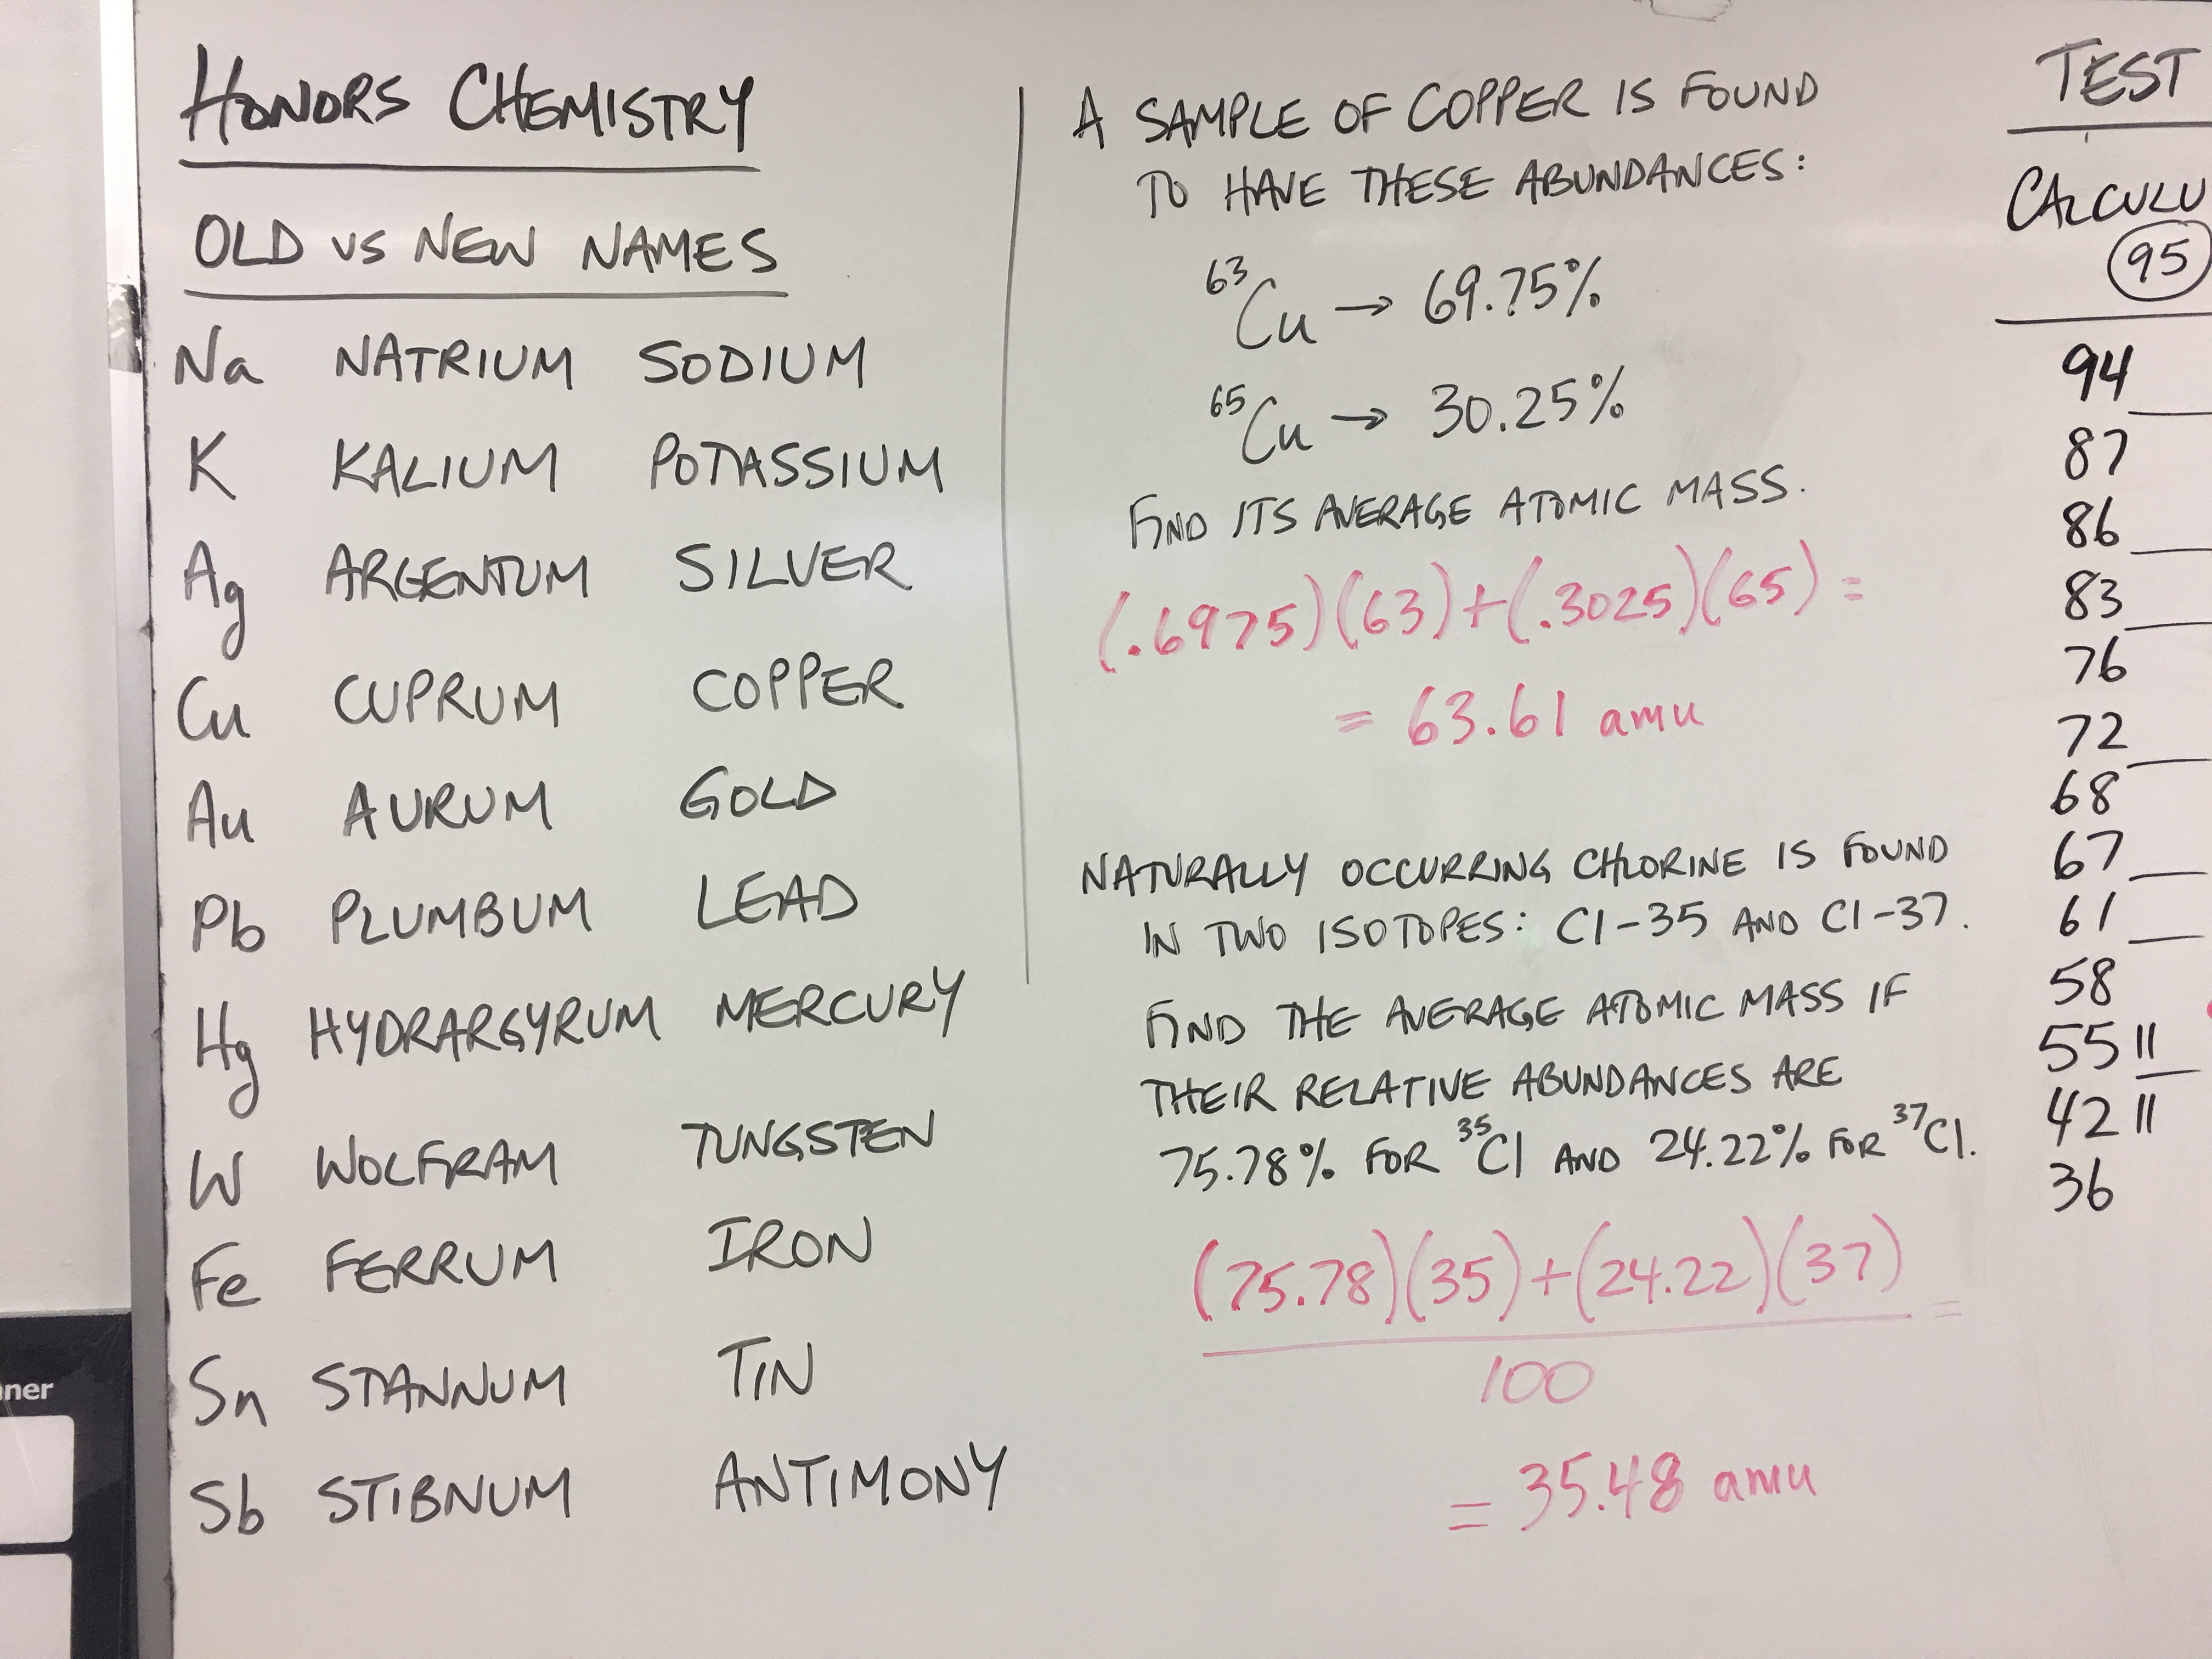 HONORS CHEMISTRY
OLD VS NEW NAMES
Na NATRIUM SODIUM
K KALIUM POTASSIUM
Ag ARGENTUM SILVER
Cu CUPRUM COPPER
Au AURUM GOLD
Pb PLUMBUM LEAD
Hg HYDRARGYRUM MERCURY
W WOLFRAM TUNGSTEN
Fe FERRUM IRON
Sn STANNUM TIN
Sb STIBNUM ANTIMONY
A SAMPLE OF COPPER IS FOUND
TO HAVE THESE ABUNDANCES:
⁶³Cu → 69.75%
⁶⁵Cu → 30.25%
FIND ITS AVERAGE ATOMIC MASS.
(.6975)(63)+(.3025)(65) =
= 63.61 amu
NATURALLY OCCURRING CHLORINE IS FOUND
IN TWO ISOTOPES: Cl-35 AND Cl-37.
FIND THE AVERAGE ATOMIC MASS IF
THEIR RELATIVE ABUNDANCES ARE
75.78% FOR ³⁵Cl AND 24.22% FOR ³⁷Cl.
(75.78)(35)+(24.22)(37) =
100
= 35.48 amu
TEST
CALCULU
95
94
87
86
83
76
72
68
67
61
58
55 ||
42 ||
36
ner